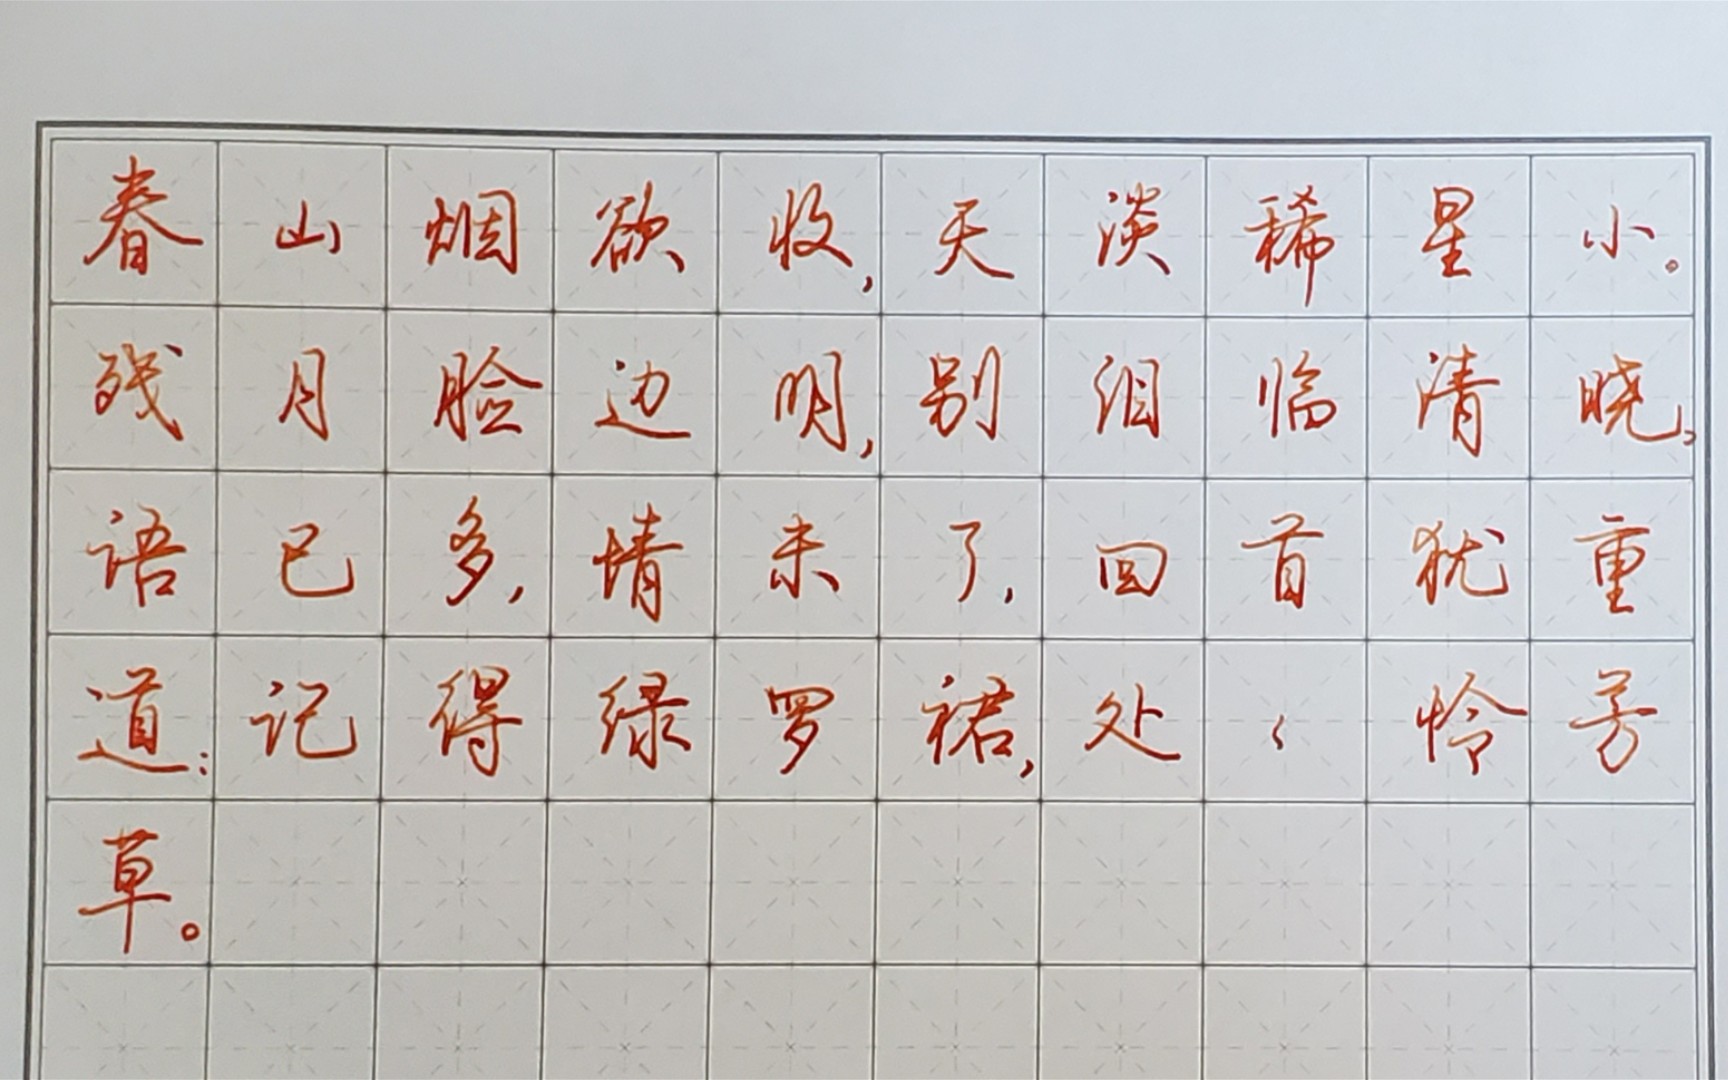 春山烟欲收,天淡稀星小。
残月脸边明,别泪临清晓,
语已多,情未了,回首犹重
道:记得绿罗裙,处々怜芳
草。